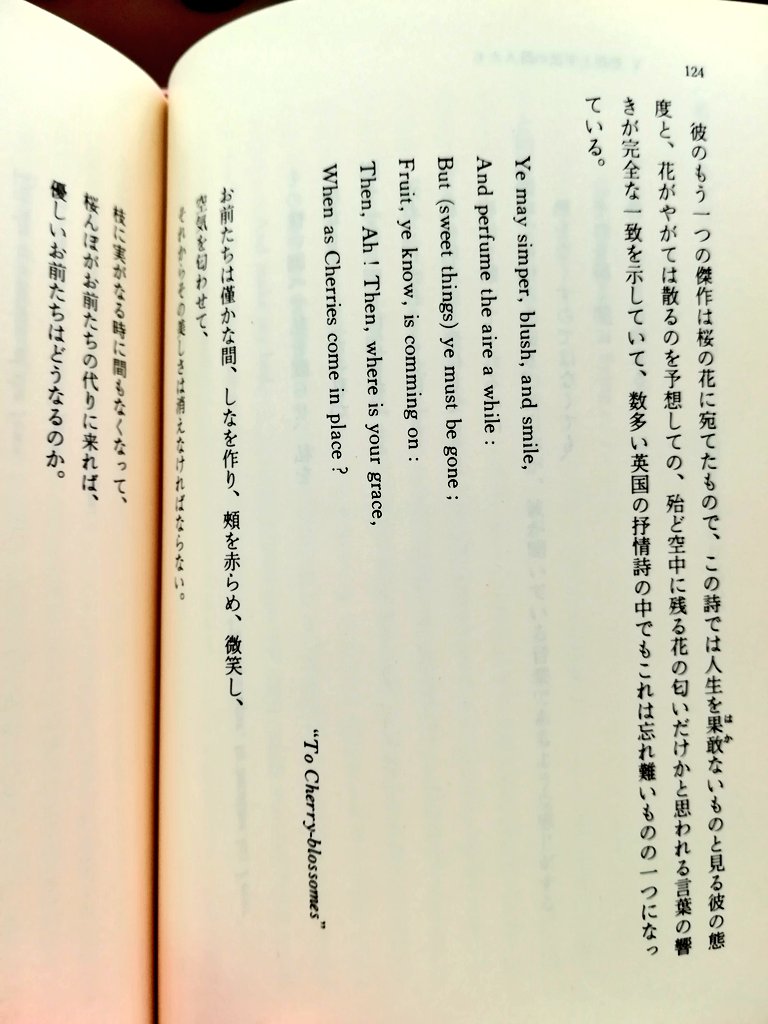 124
彼のもう一つの傑作は桜の花に宛てたもので、この詩では人生を果敢ないものと見る彼の態
はか
度と、花がやがては散るのを予想しての、殆ど空中に残る花の匂いだけかと思われる言葉の響
きが完全な一致を示していて、数多い英国の抒情詩の中でもこれは忘れ難いものの一つになっ
ている。
Ye may simper, blush, and smile,
And perfume the aire a while :
But (sweet things) ye must be gone ;
Fruit, ye know, is comming on :
Then, Ah ! Then, where is your grace,
When as Cherries come in place ?
“To Cherry-blossomes”
お前たちは僅かな間、しなを作り、頰を赤らめ、微笑し、
空気を匂わせて、
それからその美しさは消えなければならない。
枝に実がなる時に間もなくなって、
桜んぼがお前たちの代りに来れば、
優しいお前たちはどうなるのか。